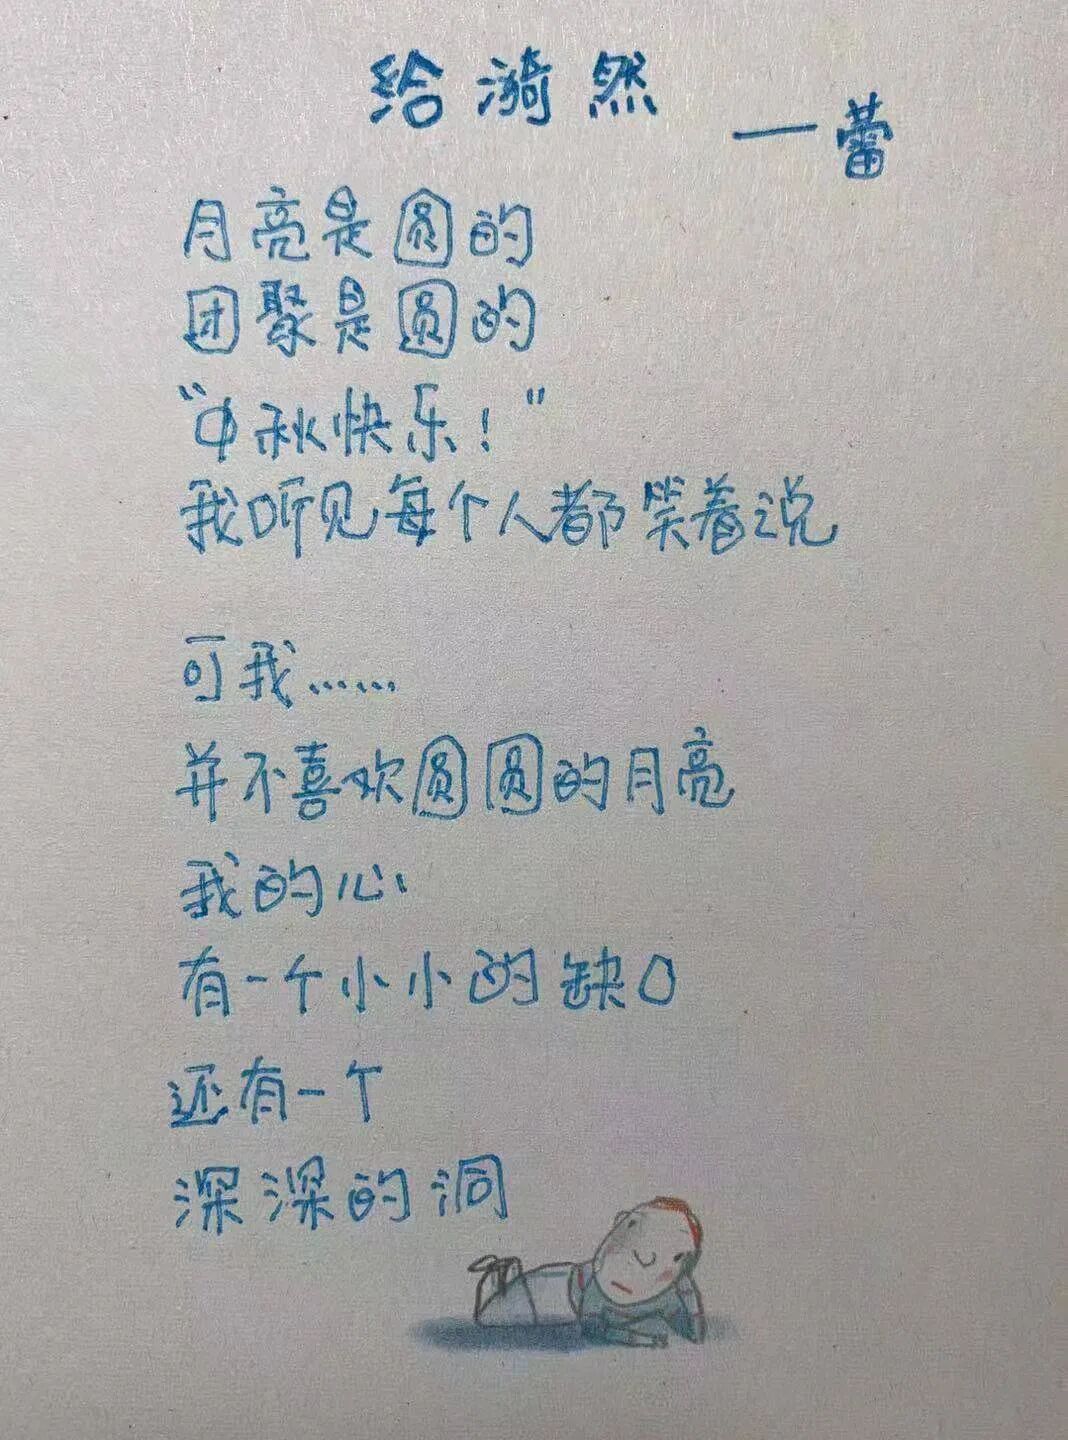 给漪然
——蕾
月亮是圆的
团聚是圆的
“中秋快乐！”
我听见每个人都笑着说
可我……
并不喜欢圆圆的月亮
我的心
有一个小小的缺口
还有一个
深深的洞